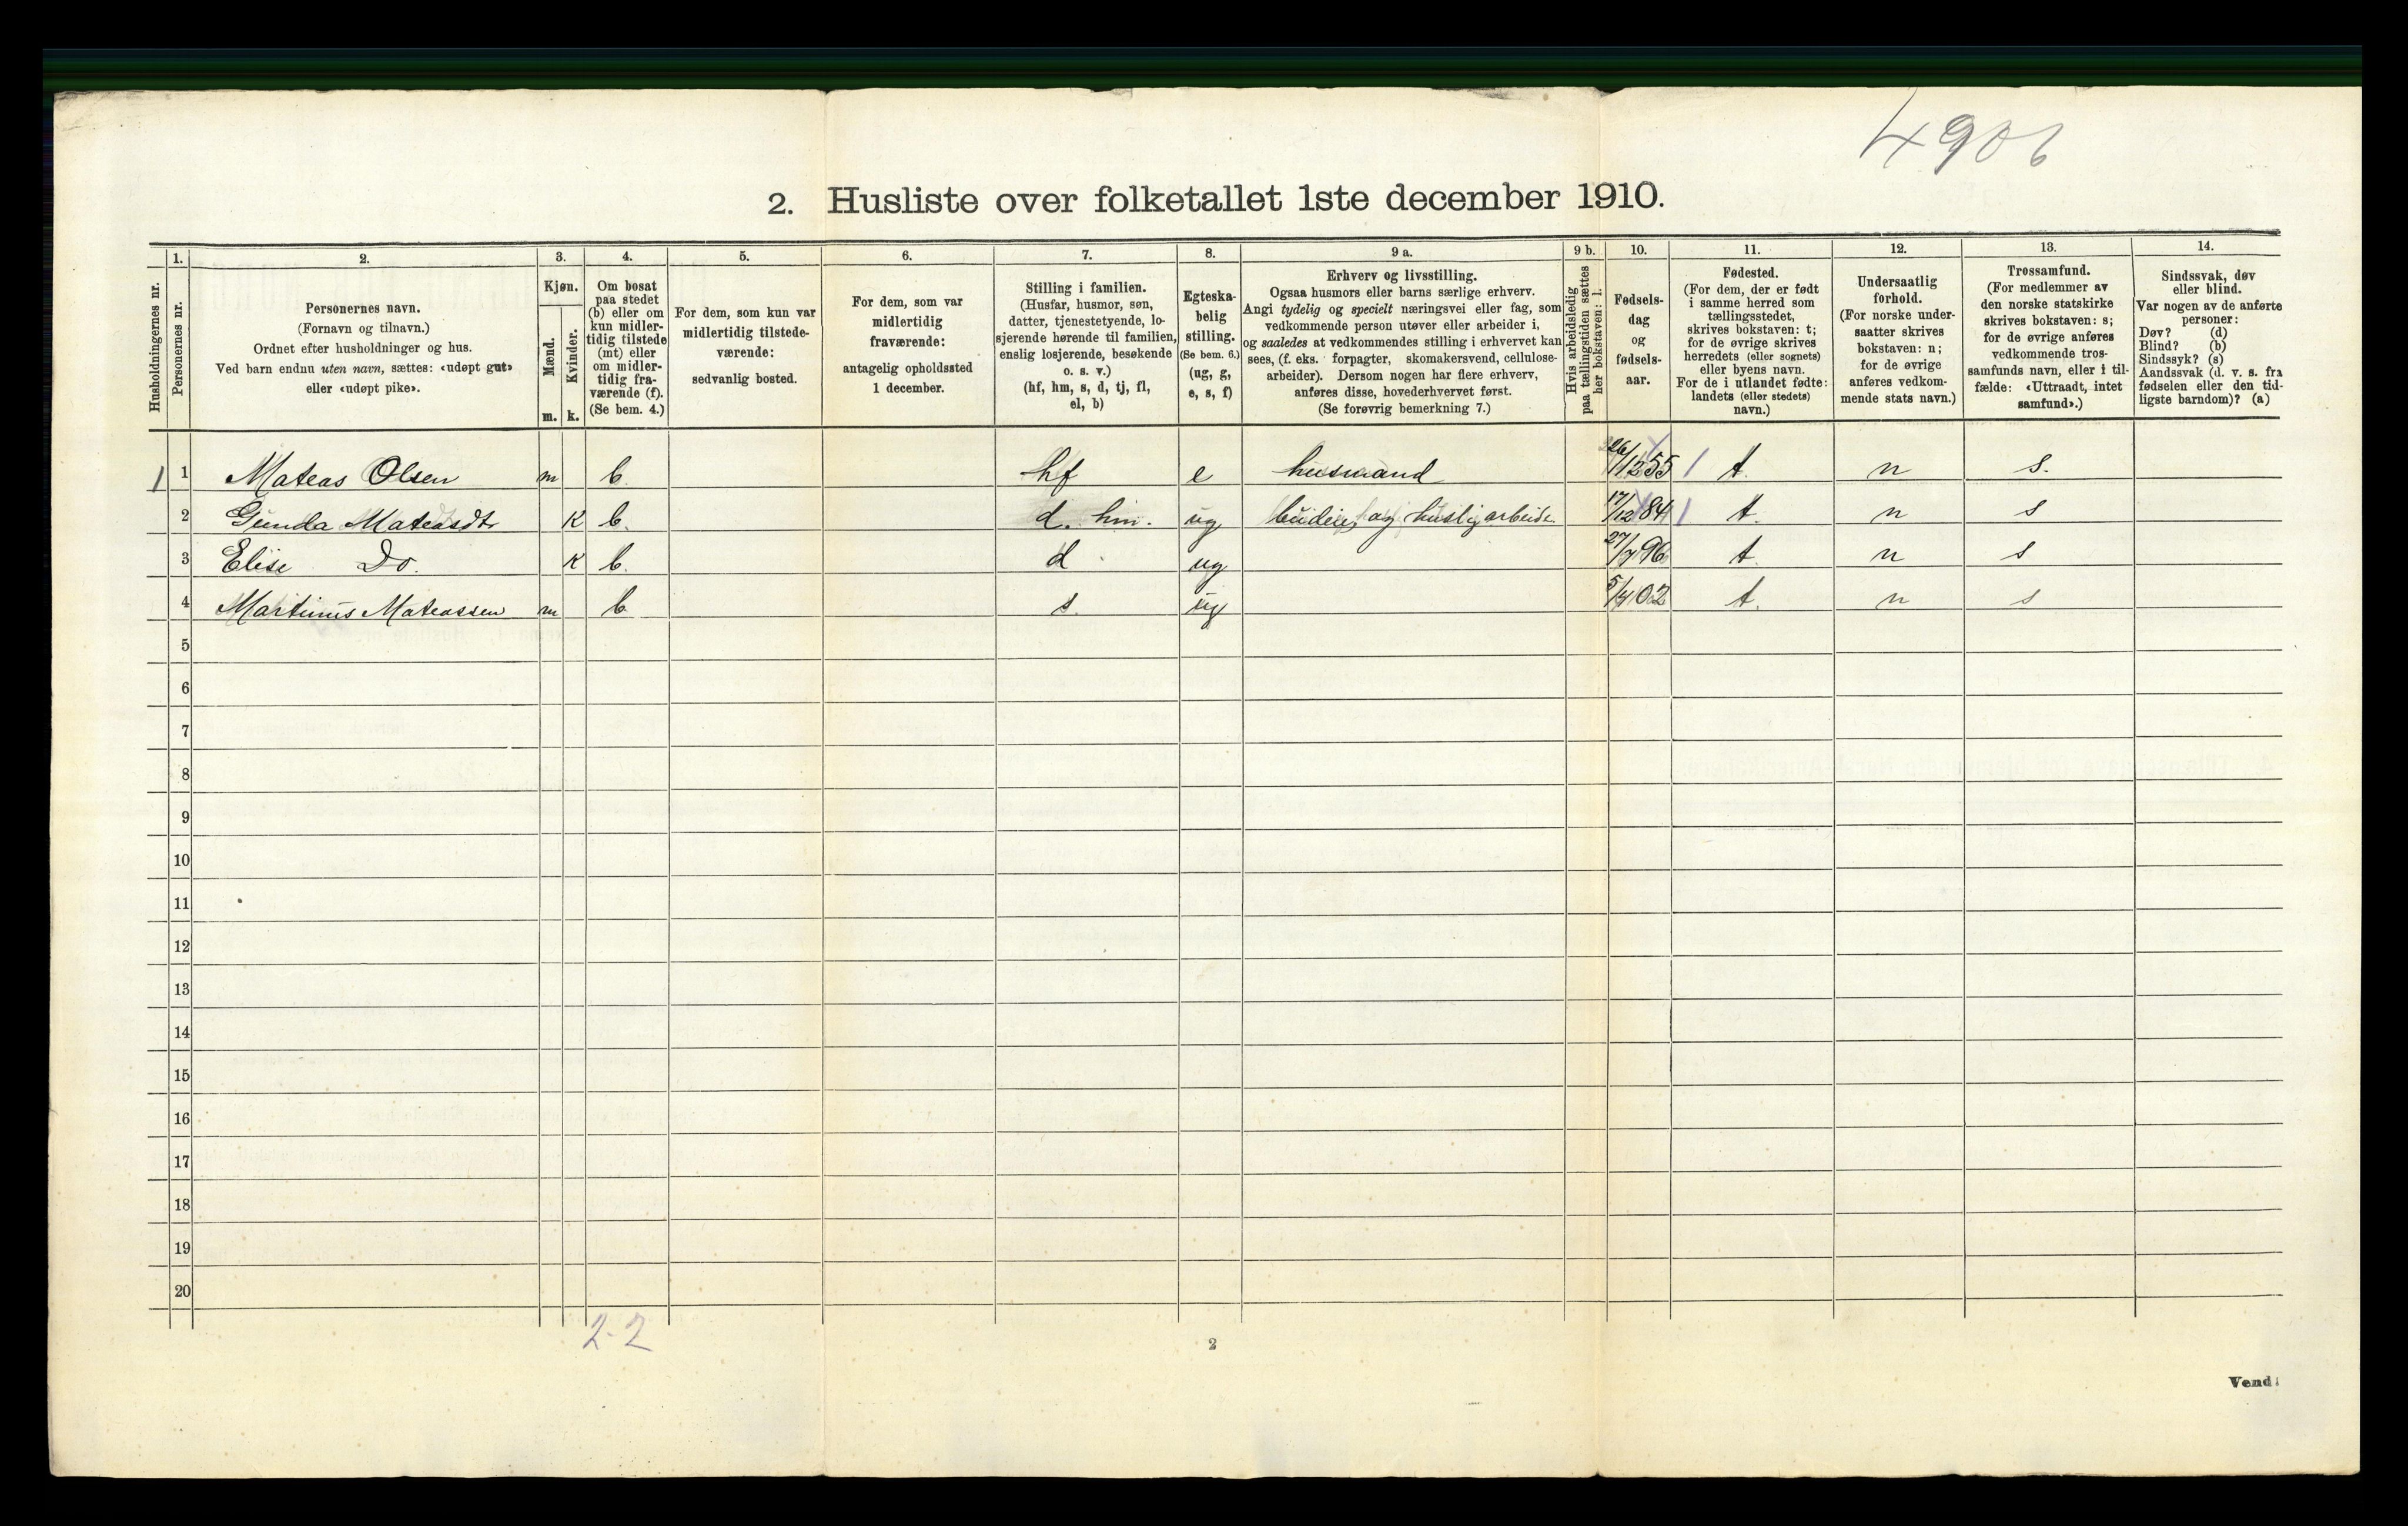 4906
2. Husliste over folketallet 1ste december 1910.
Husholdningernes nr.
1.
Personernes nr.
2.
Personernes navn.
(Fornavn og tilnavn.)
Ordnet efter husholdninger og hus.
Ved barn endnu uten navn, sættes: «udøpt gut»
eller «udøpt pike».
3.
Kjøn.
Mænd.
m.
Kvinder.
k.
4.
Om bosat
paa stedet
(b) eller om
kun midler-
tidig tilstede
(mt) eller
om midler-
tidig fra-
værende (f).
(Se bem. 4.)
5.
For dem, som kun var
midlertidig tilstede-
værende:
sedvanlig bosted.
6.
For dem, som var
midlertidig
fraværende:
antagelig opholdssted
1 december.
7.
Stilling i familien.
(Husfar, husmor, søn,
datter, tjenestetyende, lo-
sjerende hørende til familien,
enslig losjerende, besøkende
o. s. v.)
(hf, hm, s, d, tj, fl,
el, b)
8.
Egteska-
belig
stilling.
(Se bem. 6.)
(ug, g,
e, s, f)
9 a.
Erhverv og livsstilling.
Ogsaa husmors eller barns særlige erhverv.
Angi tydelig og specielt næringsvei eller fag, som
vedkommende person utøver eller arbeider i,
og saaledes at vedkommendes stilling i erhvervet kan
sees, (f. eks. forpagter, skomakersvend, cellulose-
arbeider). Dersom nogen har flere erhverv,
anføres disse, hovederhvervet først.
(Se forøvrig bemerkning 7.)
9 b.
Hvis arbeidsledig
paa tællingstiden sættes
her bokstaven: l.
10.
Fødsels-
dag
og
fødsels-
aar.
11.
Fødested.
(For dem, der er født
i samme herred som
tællingsstedet,
skrives bokstaven: t;
for de øvrige skrives
herredets (eller sognets)
eller byens navn.
For de i utlandet fødte:
landets (eller stedets)
navn.)
12.
Undersaatlig
forhold.
(For norske under-
saatter skrives
bokstaven: n;
for de øvrige
anføres vedkom-
mende stats navn.)
13.
Trossamfund.
(For medlemmer av
den norske statskirke
skrives bokstaven: s;
for de øvrige anføres
vedkommende tros-
samfunds navn, eller i til-
fælde: «Uttraadt, intet
samfund».)
14.
Sindssvak, døv
eller blind.
Var nogen av de anførte
personer:
Døv? (d)
Blind? (b)
Sindssyk? (s)
Aandssvak (d. v. s. fra
fødselen eller den tid-
ligste barndom)? (a)
1 1 Mateas Olsen m b. hf e husmand 26/12 55 t. n s.
2 Gunda Mateasdtr K b. d. hm. ug budeie og huslig arbeide 17/12 84 t. n s
3 Elise Do. K b. d ug 27/7 96 t. n s
4 Martinus Mateassen m b s. ug 5/4 02 t. n s
5
6
7
8
9
10
11
12
13
14
15
16
17
18
19
20
2-2
2
Vend!